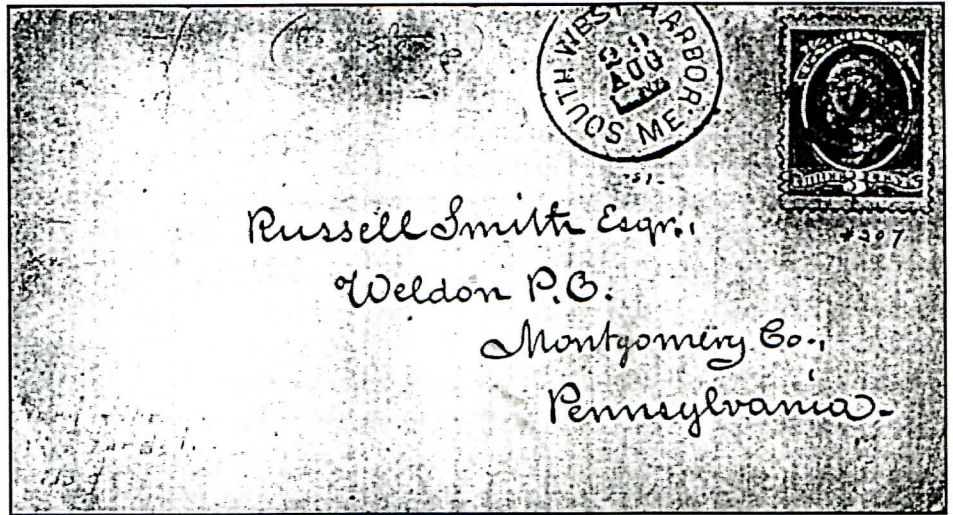 SOUTH WEST HARBOR ME.
22
AUG
THREE 3 CENTS
#207
Russell Smith Esqr.,
Weldon P.O.
Montgomery Co.,
Pennsylvania.